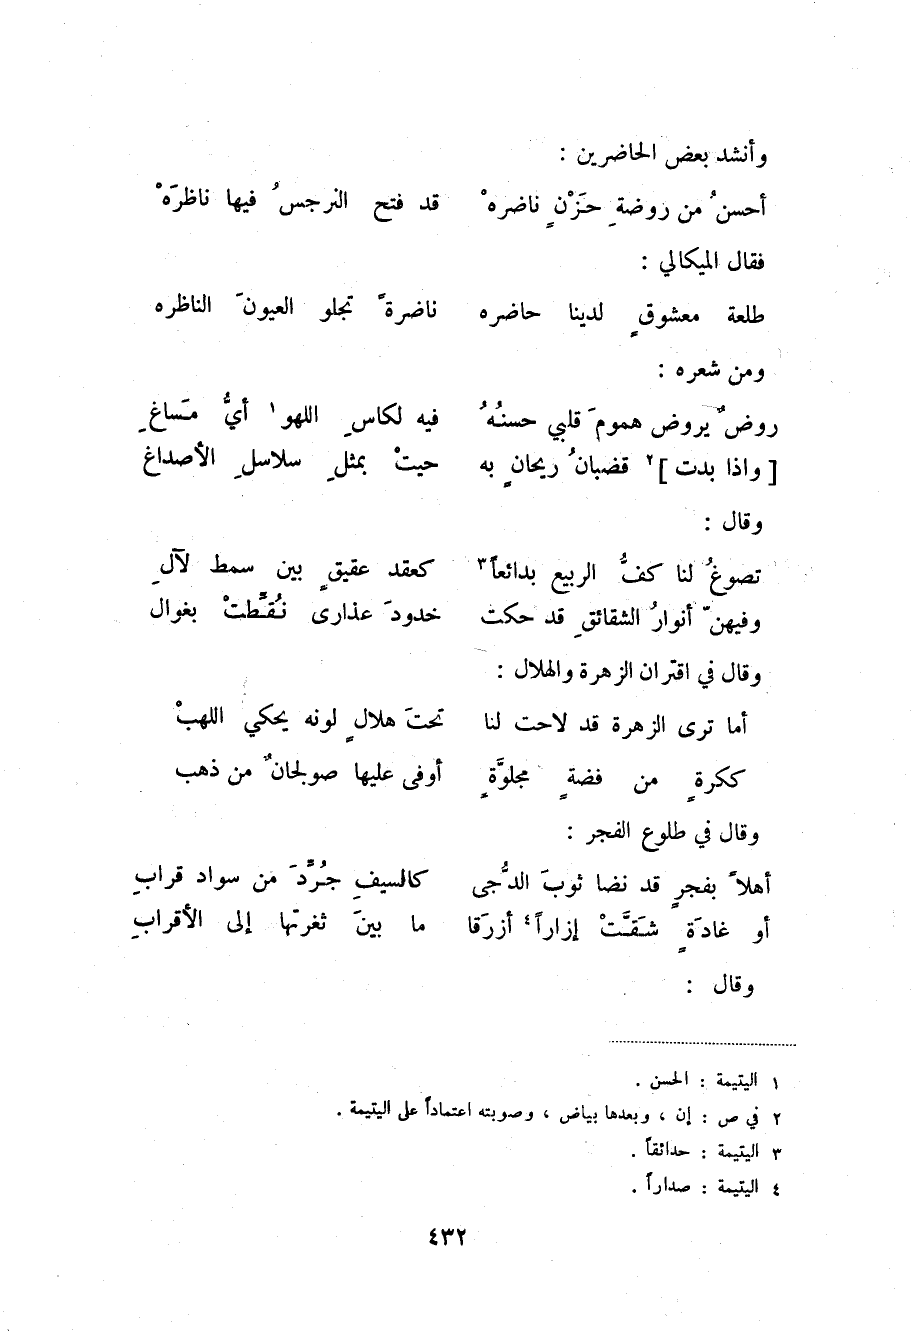 وأنشد بعض الحاضرين :
أحسنُ من روضةِ حَزْنٍ ناضرهْ قد فتح النرجسُ فيها ناظرَهْ
فقال الميكالي :
طلعة معشوقٍ لدينا حاضره ناضرةً تجلو العيونَ الناظره
ومن شعره :
روضٌ يروض همومَ قلبي حسنُهُ فيه لكاسِ اللهو١ أيُّ مَساغِ
[ واذا بدت ]٢ قضبانُ ريحانٍ به حيتْ بمثلِ سلاسلِ الأصداغ
وقال :
تصوغُ لنا كفُّ الربيع بدائعاً٣ كعقد عقيقٍ بين سمط لآلِ
وفيهنّ أنوارُ الشقائقِ قد حكت خدودَ عذارى نُقِّطتْ بغوال
وقال في اقتران الزهرة والهلال :
أما ترى الزهرة قد لاحت لنا تحتَ هلالٍ لونه يحكي اللهبْ
ككرةٍ من فضةٍ مجلوَّةٍ أوفى عليها صولجانٌ من ذهب
وقال في طلوع الفجر :
أهلاً بفجرٍ قد نضا ثوبَ الدُّجى كالسيفِ جُرِّدَ من سواد قرابِ
أو غادَةٍ شَقَّتْ إزاراً٤ أزرَقا ما بينَ ثغرتها إلى الأقرابِ
وقال :
١ اليتيمة : الحسن .
٢ في ص : إن ، وبعدها بياض ، وصوبته اعتماداً على اليتيمة .
٣ اليتيمة : حدائقاً .
٤ اليتيمة : صداراً .
٤٣٢